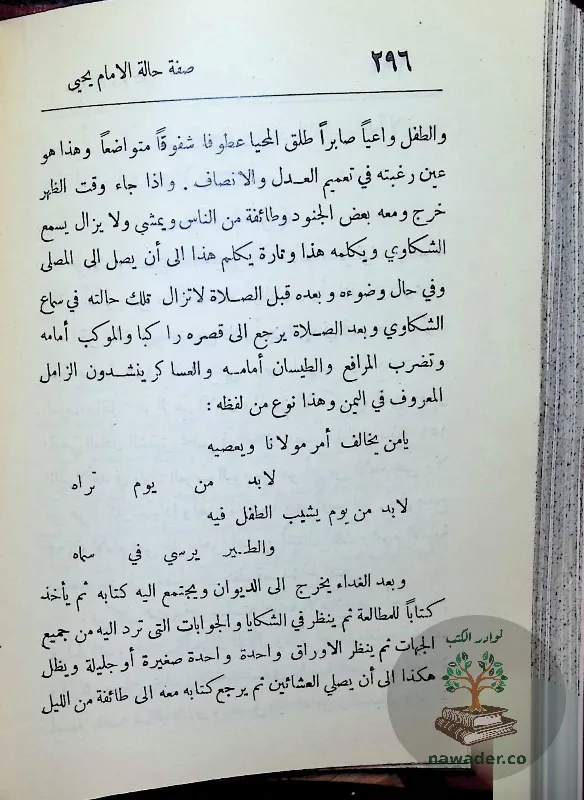 ٢٩٦
صفة حالة الامام يحيى
والطفل واعياً صابراً طلق المحيا عطوفا شفوقاً متواضعاً وهذا هو
عين رغبته في تعميم العدل والانصاف . واذا جاء وقت الظهر
خرج ومعه بعض الجنود وطائفة من الناس ويمشى ولا يزال يسمع
الشكاوي ويكلمه هذا وتارة يكلم هذا الى أن يصل الى المصلى
وفي حال وضوءه وبعده قبل الصلاة لاتزال تلك حالته في سماع
الشكاوي وبعد الصلاة يرجع الى قصره راكبا والموكب أمامه
وتضرب المرافع والطيسان أمامه والعساكر ينشدون الزامل
المعروف في اليمن وهذا نوع من لفظه :
يامن يخالف أمر مولانا ويعصيه
لابد من يوم تراه
لابد من يوم يشيب الطفل فيه
والطير يرسي في سماه
وبعد الغداء يخرج الى الديوان ويجتمع اليه كتابه ثم يأخذ
كتاباً للمطالعة ثم ينظر في الشكايا والجوابات التى ترد اليه من جميع
الجهات ثم ينظر الاوراق واحدة واحدة صغيرة أو جليلة ويظل
هكذا الى أن يصلي العشائين ثم يرجع كتابه معه الى طائفة من الليل
نوادر الكتب
nawader.co